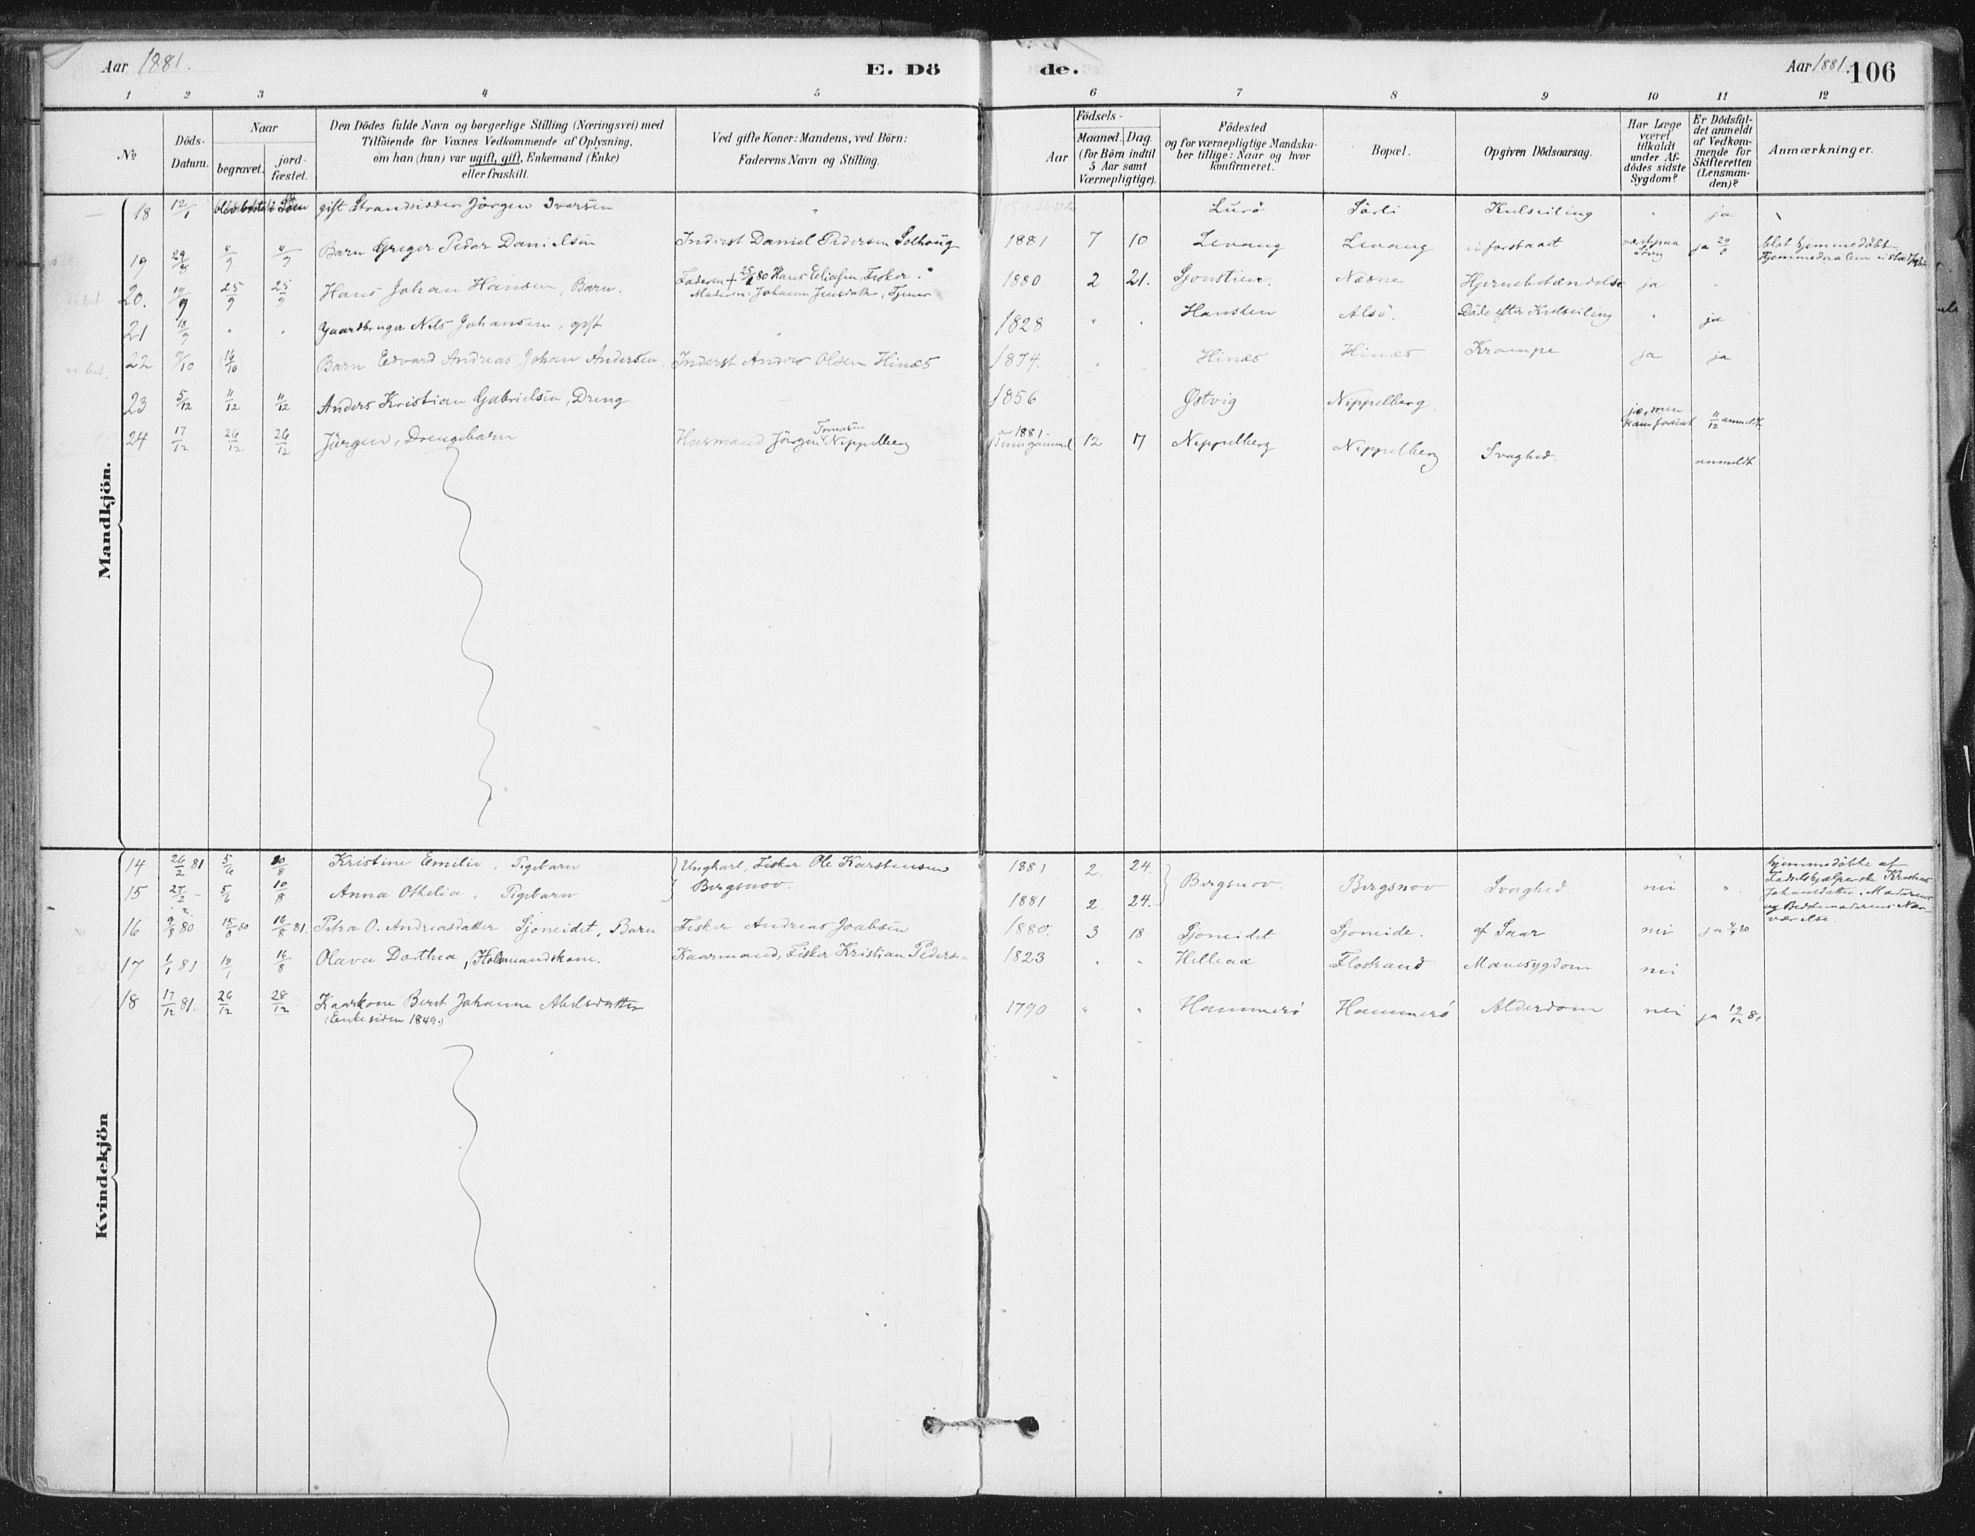 Aar 1881. E. Dö de. Aar 1881. 106
1 2 3 4 5 6 7 8 9 10 11 12
No
Döds-
Datum.
Naar
begravet.
jord-
fæstet.
Den Dödes fulde Navn og borgerlige Stilling (Næringsvei) med
Tilföiende for Voxnes Vedkommende af Oplysning,
om han (hun) var ugift, gift, Enkemand (Enke)
eller fraskilt.
Ved gifte Koner: Mandens, ved Börn:
Faderens Navn og Stilling.
Födsels-
Aar
Maaned. Dag.
(for Börn indtil
5 Aar samt
Værnepligtige).
Födested
og for værnepligtige Mandska-
ber tillige: Naar og hvor
konfirmeret.
Bopæl.
Opgiven Dödsaarsag.
Har Læge
været
tilkaldt
under Af-
dödes sidste
Sygdom?
Er Dödsfal-
det anmeldt
af Vedkom-
mende for
Skifteretten
(Lensman-
den)?
Anmærkninger.
Mandkjön.
18 12/1 gift Strandsidder Jörgen Iversen " Lurö Sörli Kulseiling " ja
19 29/8 4/9 4/9 Barn Greger Peder Danielsen Inderst Daniel Pedersen Solhoug 1881 7 10 Levang Levang ja 29/8
20. 19/9 25/9 25/9 Hans Johan Hansen, Barn. Faderen + 25/2 80 Hans Eliasen Fisker. 1880 2 21. Sjonstien. Næsne Hjernebetændelse ja "
Moderen: Johanna Jensdatter, Tjener
21 18/9 " " Gaardbruger Nils Johansen, gift " 1828 " " Hansten Alsö. Döde efter Kulseiling " ja
22 9/10 16/10 Barn Edvard Andreas Johan Andersen. Inderst Anders Olsen Hinæs 1874. " Hinæs Hinæs Krampe ja ja
23 5/12 11/12 11/12 Anders Kristian Gabrielsen, Dreng 1856 Østvig Nippelberg. ja, men 11/12 anmeldt
24 17/12 26/12 26/12 Jörgen, Drengebarn Husmand Jörgen Tomasen Nippelberg 1881 12 17 Nippelberg Nippelberg Svaghed. anmeldt
Kvindekjön
14 26/2 81 5/6 10/8 Kristine Emelie, Pigebarn Ungkarl, Fisker Ole Karstensen 1881 2. 24. hjemmedöbte af
15 27/2 - 5/6 10/8 Anna Othelia, Pigebarn Bergsnov. 1881 2 24. Bergsnov. Bergsnov Svaghed nei " Johansdatter i Moderens
og Bedstemoderens Nær-
værelse.
16 9/8 80 15/8 80 14/8 81. Petra O. Andreasdatter Sjoneidet, Barn Fisker Andreas Joabsen 1880. 3 18 Sjoneidet Sjoneide. af Saar nei
17 1/1 81 10/1 14/8 Olava Dorthea, Kaarmand, Fisker Kristian Peders 1823 " " Helleaa Flostrand Mavesygdom nei
18 17/12 81. 26/12 28/12 Kaarkone Berit Johanna Abelsdatter 1790 " " Hammerö Hammerö Alderdom nei ja 19/12 81
(Enke siden 1849.)